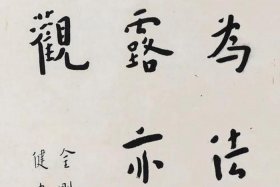 為法
露亦
觀
金
健